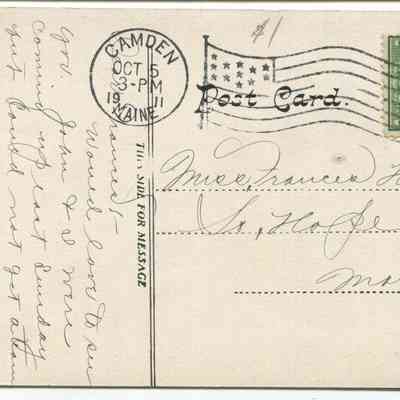 $1
CAMDEN
OCT 5
3-PM
19 11
MAINE
Post Card.
THIS SIDE FOR MESSAGE
Frances:-
Would love to see
you. John & I were
coming up last Sunday
but could not get a team
Miss, Frances H
So, Hope
Ma